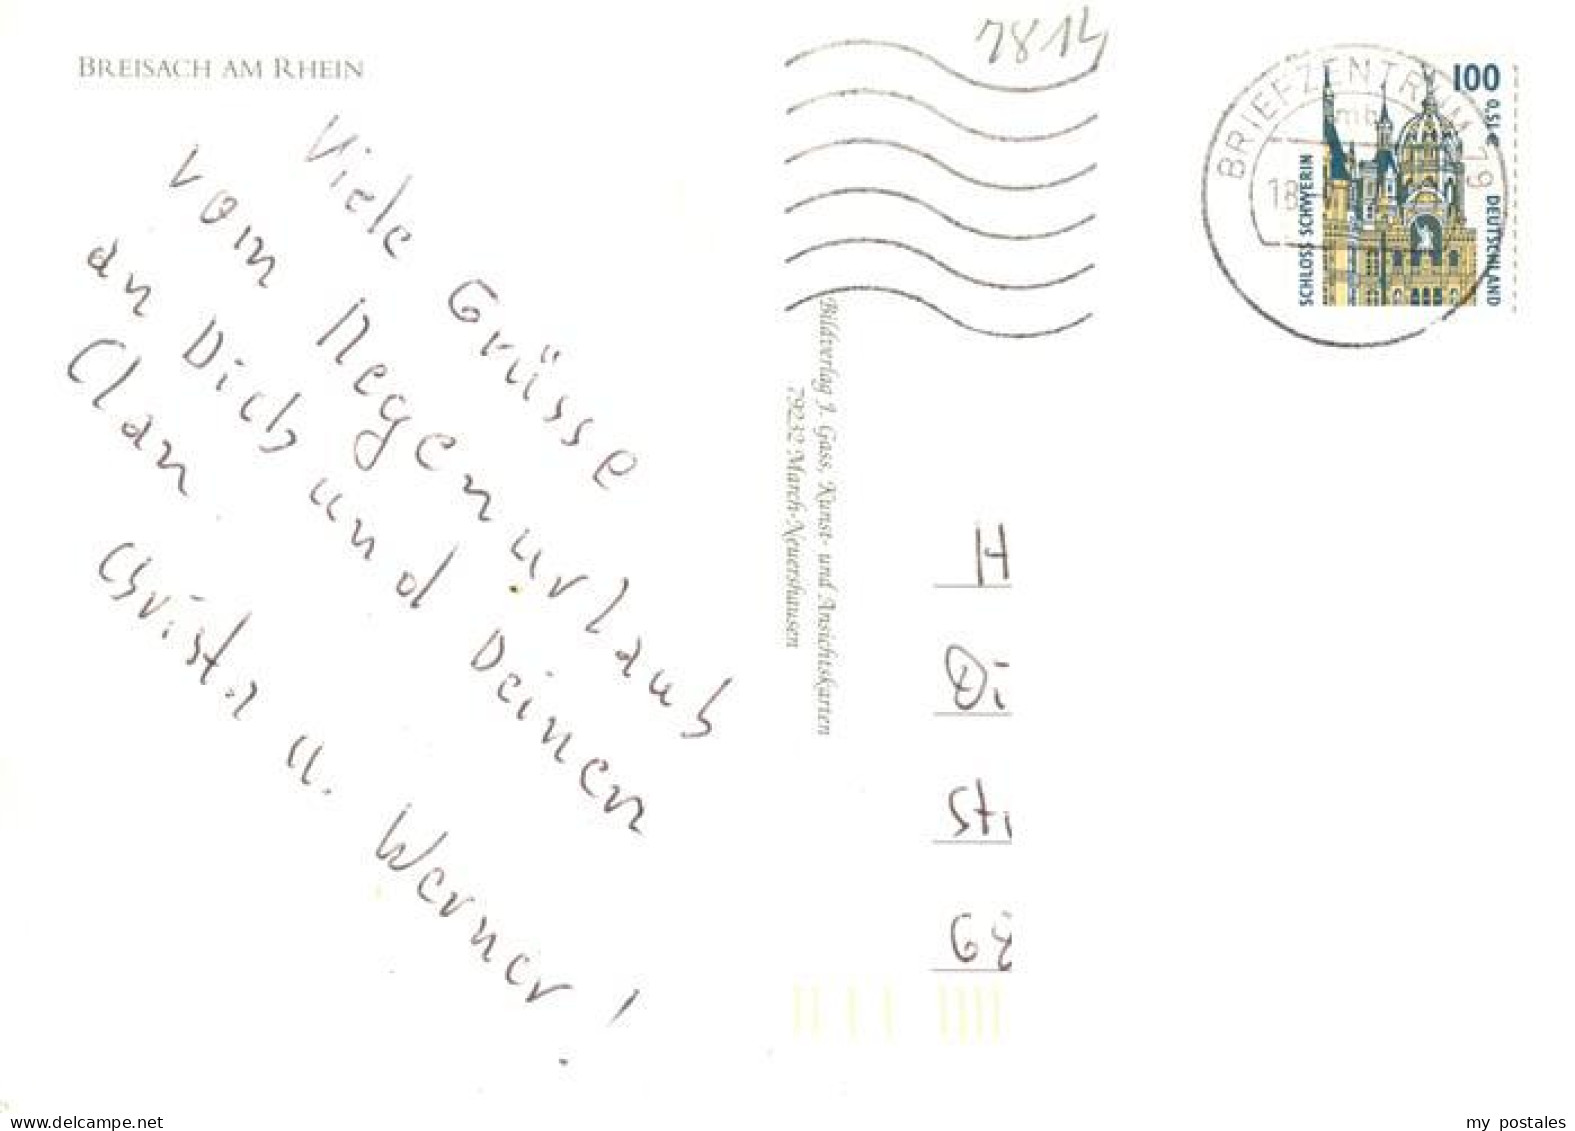 BREISACH AM RHEIN
Viele Grüsse
vom Regenurlaub
an Dich und Deinen
Clan.
Christa u. Werner!
Bildverlag J. Gass, Kunst- und Ansichtskarten
79232 March-Neuershausen
7814
BRIEFZENTRUM 79
mb
18
100
0,51 €
SCHLOSS SCHWERIN
DEUTSCHLAND
H
Di
St
69
my postales